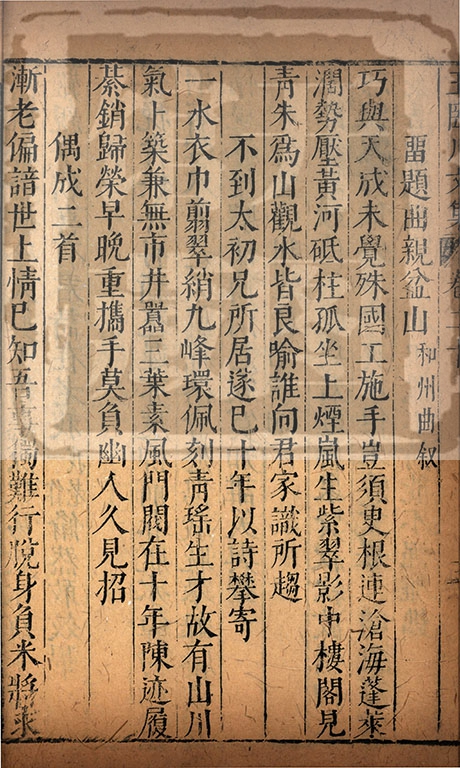 臨川文集卷
畱題曲親盆山 和州曲叙
巧與天成未覺殊國工施手豈須臾根連滄海蓬萊
濶勢壓黃河砥柱孤坐上煙嵐生紫翠影中樓閣見
靑朱爲山觀水皆良喻誰向君家識所趨
不到太初兄所居遂已十年以詩攀寄
一水衣巾翦翠綃九峰環佩刻靑瑤生才故有山川
氣卜築兼無市井囂三葉素風門閥在十年陳迹履
綦銷歸榮早晚重攜手莫負幽人久見招
偶成二首
漸老偏諳世上情已知吾事獨難行脫身負米將求